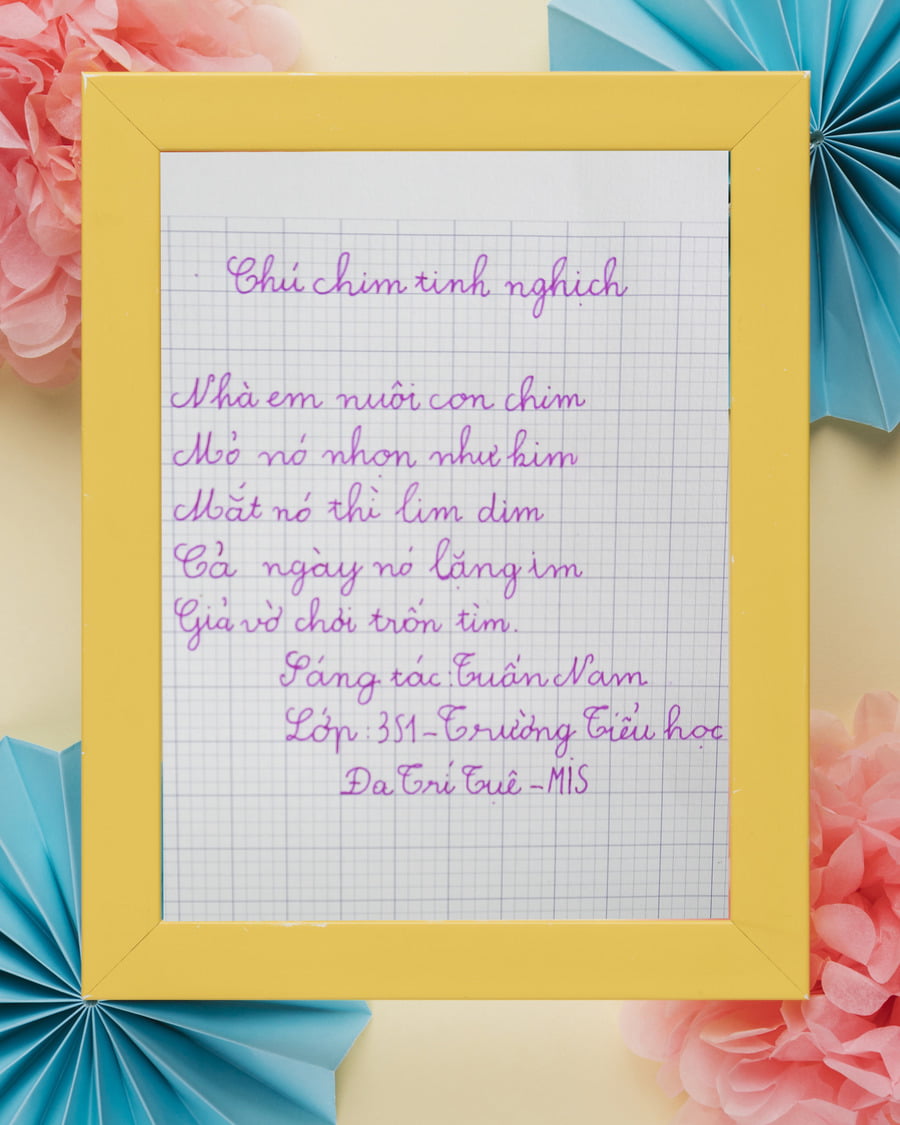 Chú chim tinh nghịch
Nhà em nuôi con chim
Mỏ nó nhọn như kim
Mắt nó thì lim dim
Cả ngày nó lặng im
Giả vờ chơi trốn tìm.
Sáng tác: Tuấn Nam
Lớp: 3S1 - Trường Tiểu học
Đa Trí Tuệ - MIS